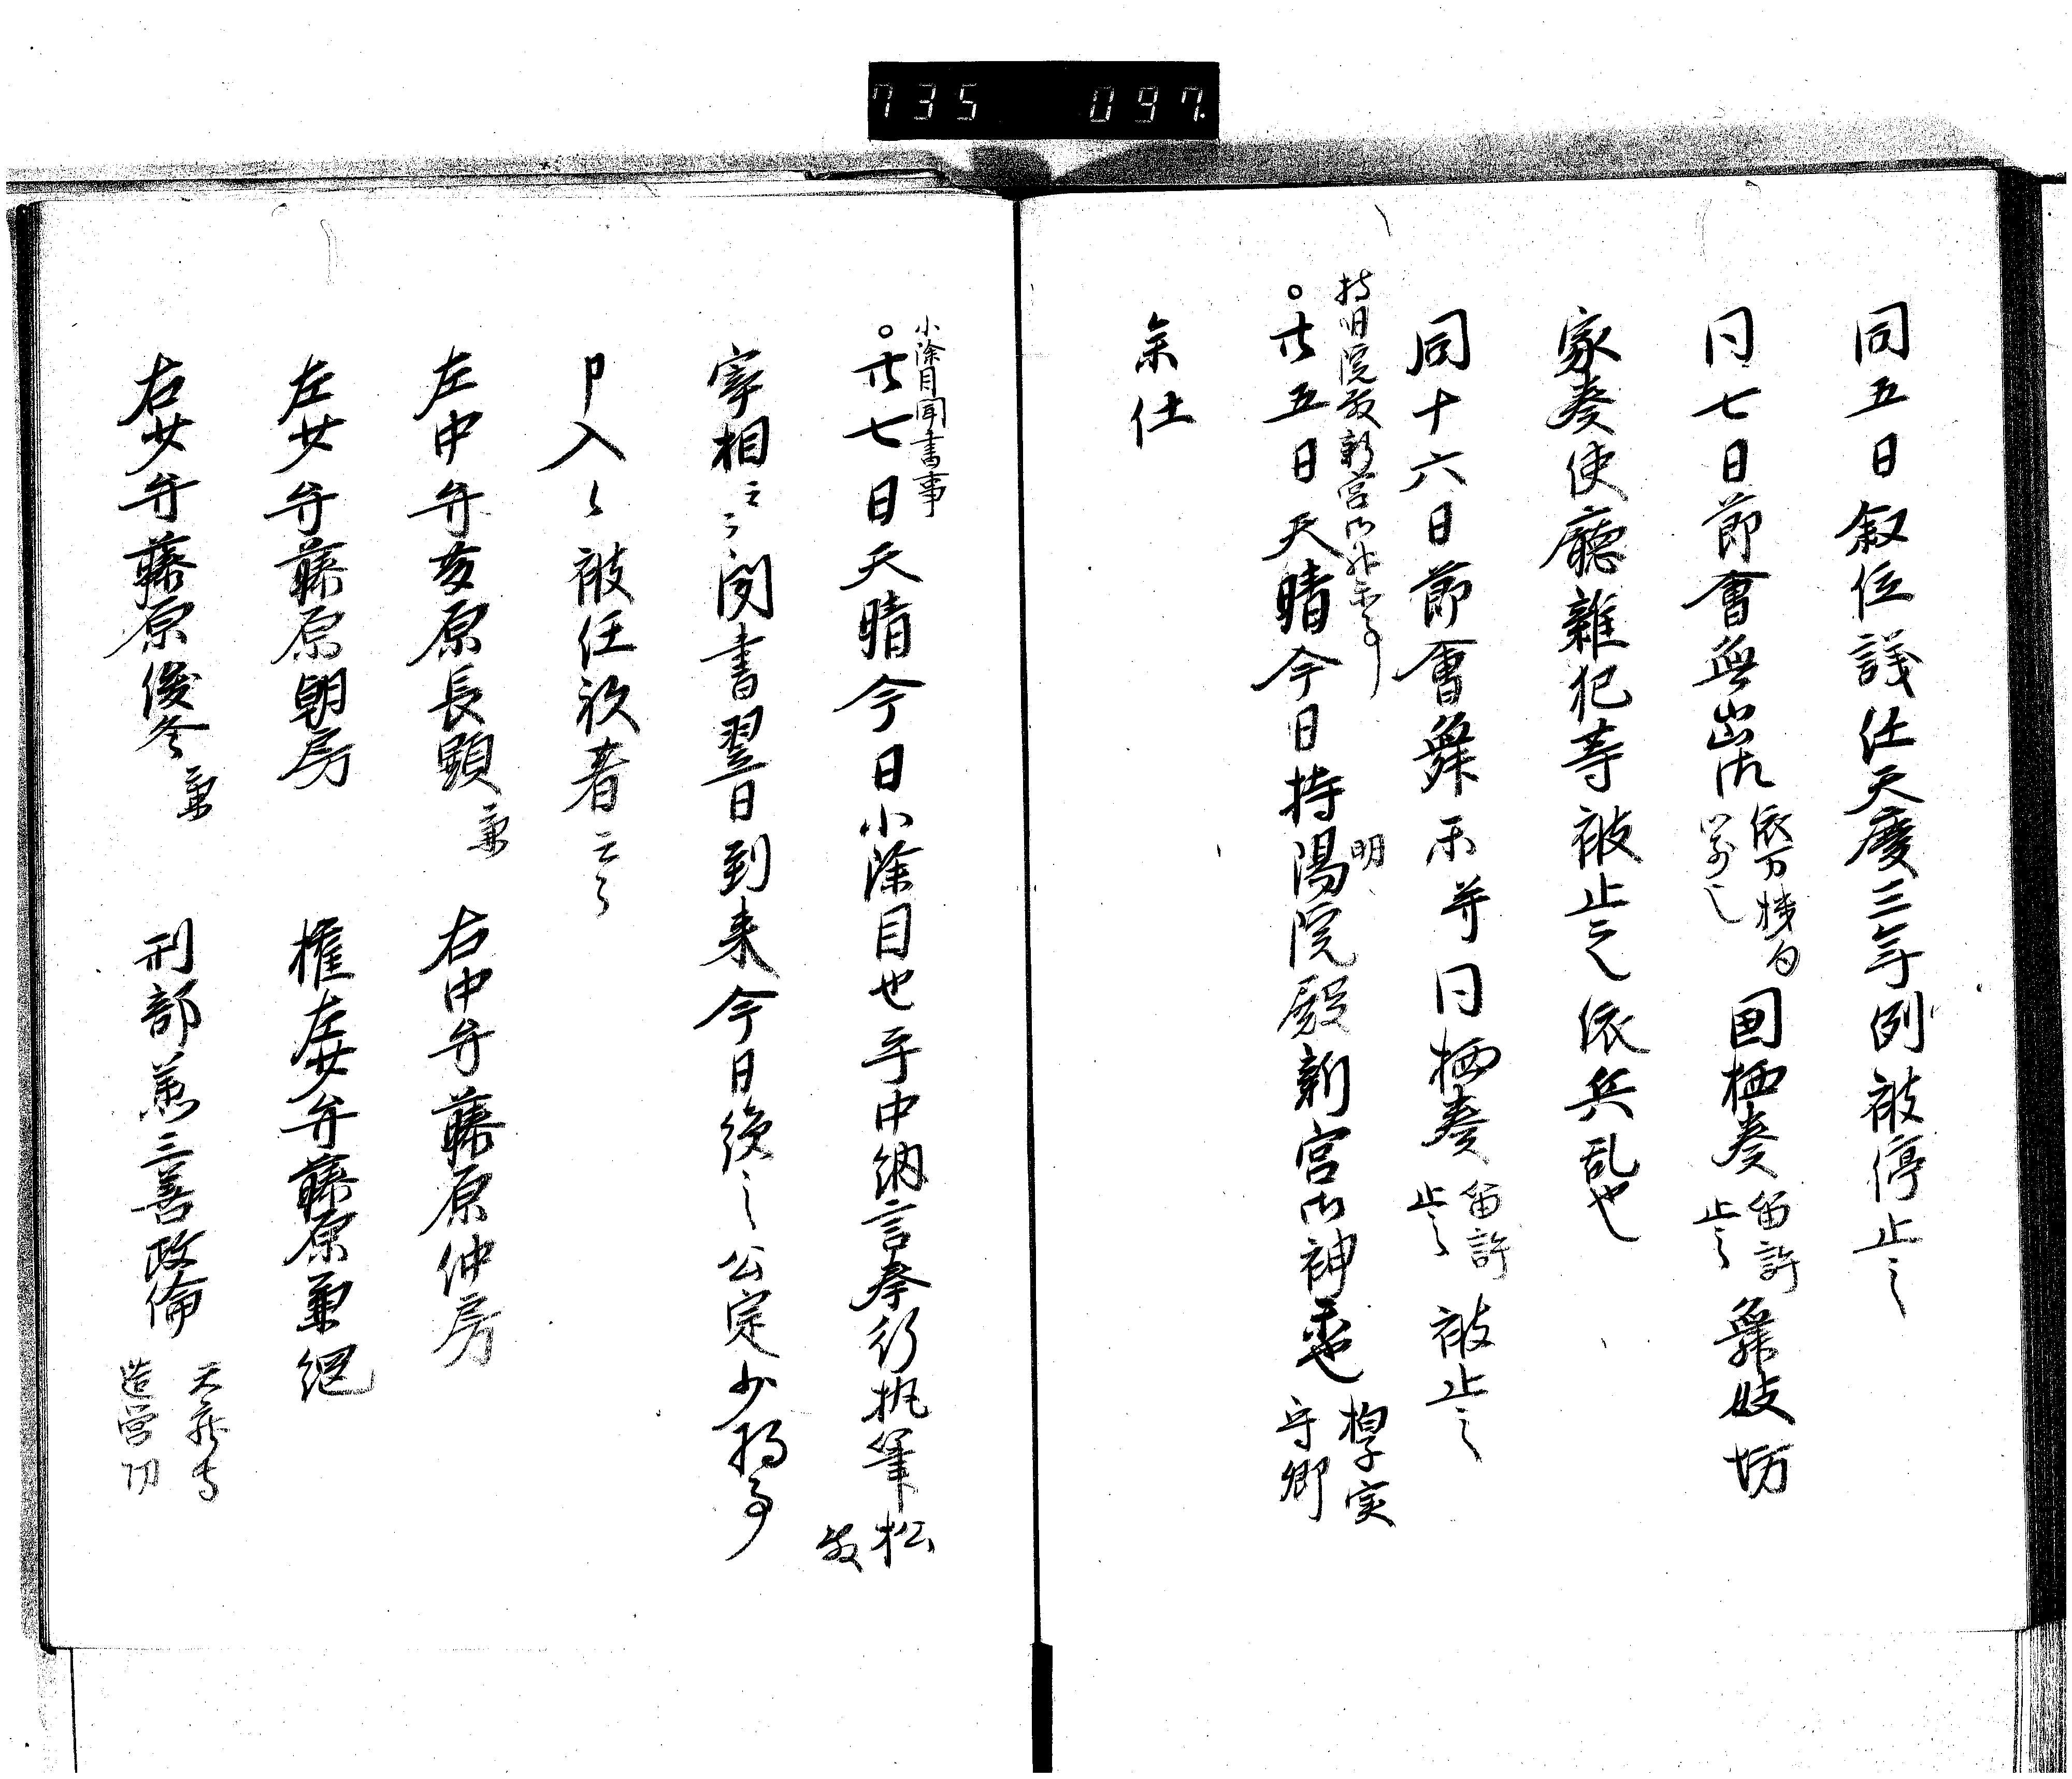 735 097.
同五日叙位議任天慶三年例被停止之
同七日節會無出御 依万機自 国栖奏 笛許 止之 舞妓坊
家奏使廳雑犯等被止之依兵乱也
同十六日節會舞不并同栖奏 笛許 止之 被止之
持明院殿新宮御
。廿五日天晴今日持陽院殿新宮御神 守卿
明
参仕
小除目聞書事
。廿七日天晴今日小除目也平中納言奉行執筆松
宰相云々聞書翌日到来今日後之公定少将
卩入々被任歟者云々
左中弁藤原長顕 兼 右中弁藤原仲房
左少弁藤原朝房 権左少弁藤原兼綱
右少弁藤原俊冬 兼 刑部 三善政倫 天龍寺 造営功